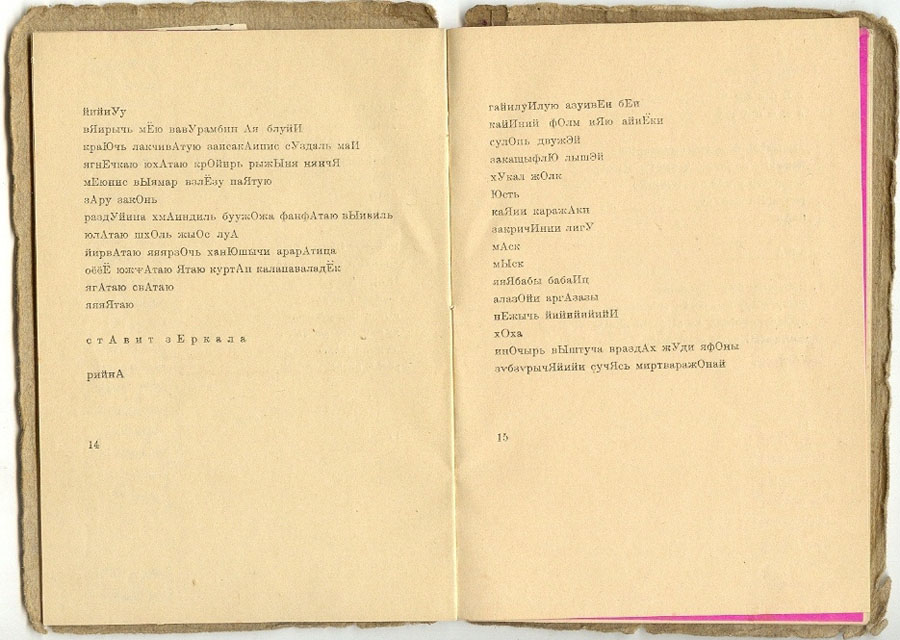 йийиУу
вЯирычь мЁю вавУрамбип Ая блуйИ
краЮчь лакчивАтую запсакАипис сУздаль маИ
ягнЕчкаю юхАтаю крОйирь рыжЫня нянчЯ
мЕюпис вЫямар взлЁзу паЯтую
зАру закОнь
раздУйина хмАиндиль буужОжа факфАтаю вЫикиль
юлАтаю шхОль жыОс луА
йирвАтаю яяярзОчь ханЮшычи арарАтица
оёёЁ южжАтаю Ятаю куртАп калапаваладЁк
ягАтаю свАтаю
яяяЯтаю
стАвит зЕркала
рийнА
14
гайилуИлую азуивЕн бЕи
кайИний фОлм иЯю айиЁки
сулОпь двужЭй
закащыфлЮ лышЭй
хУкал жОлк
Юсть
каЯии каражАкп
закричИнии лигУ
мАск
мЫск
яяЯбабы бабаИц
алазОйи аргАзазы
пЕжычь йийийийийИ
хОха
инОчырь вЫштуча враздАх жУди яфОны
зубаурычЯйийи сучЯсь миртваражОнай
15